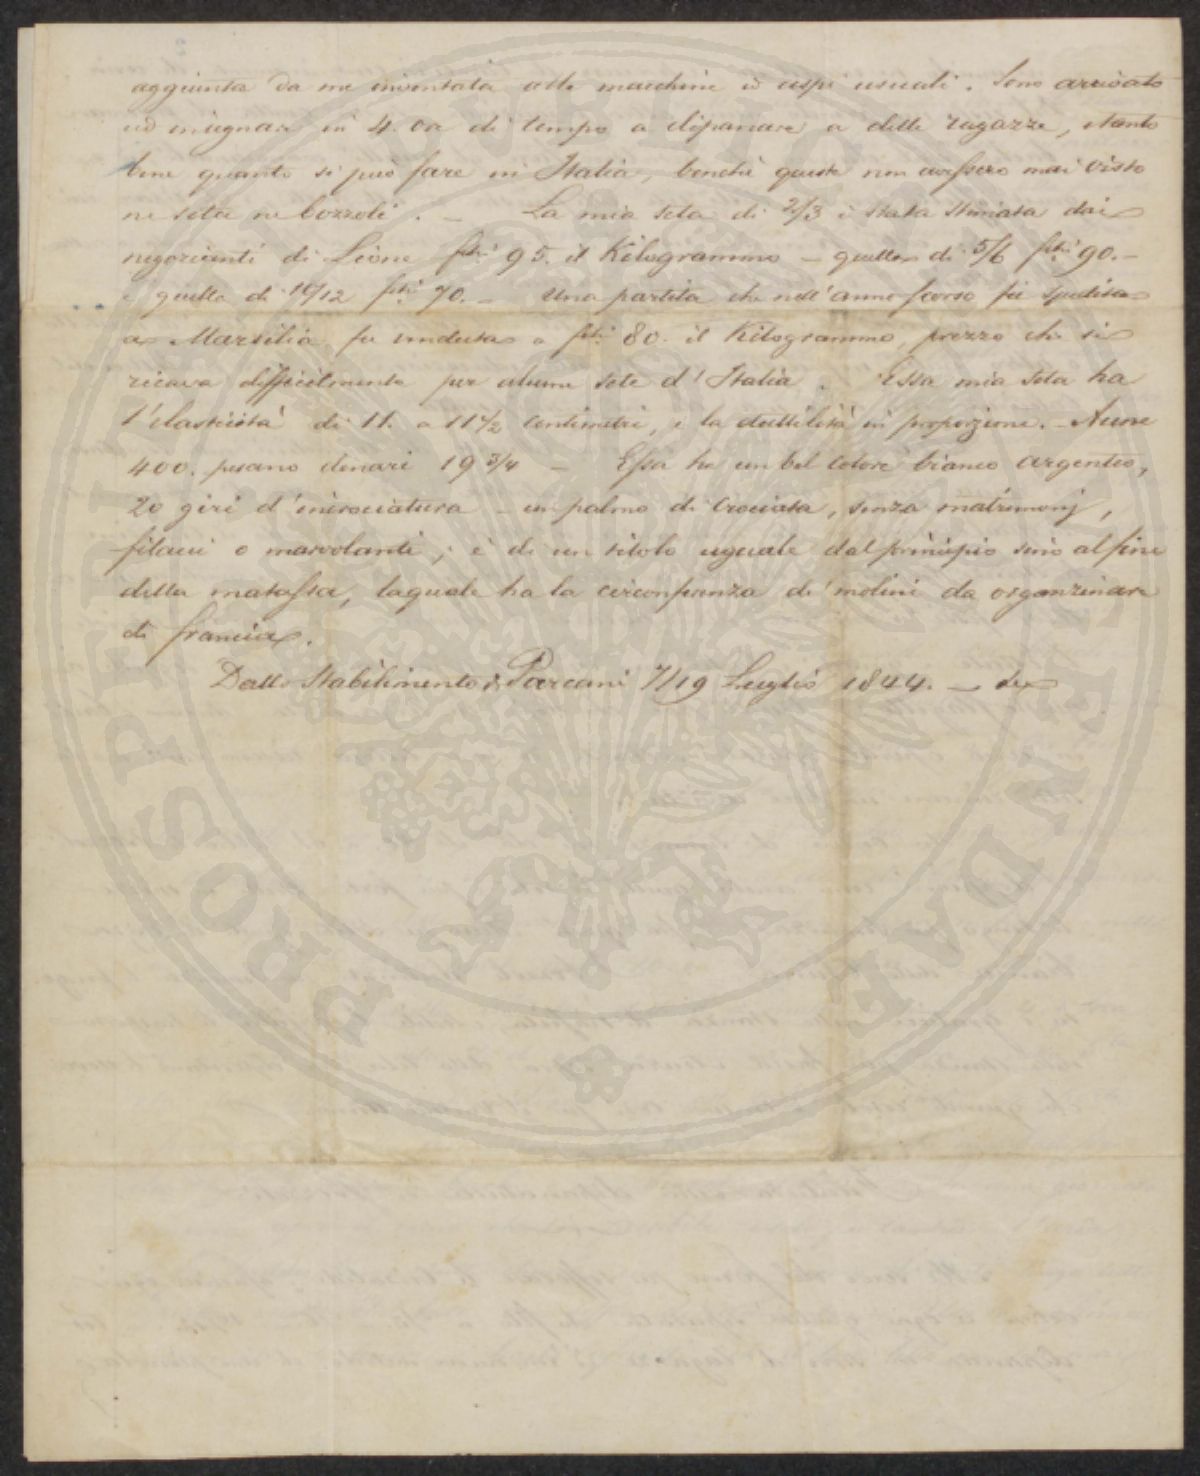 aggiunta da me inventata alle macchine ed aspi usuali. Sono arrivato
ad insegnare in 4. ore di tempo a dipanare a delle ragazze, tanto
bene quanto si può fare in Italia, benchè queste non avessero mai visto
ne seta ne bozzoli. – La mia seta di 2/3 è stata stimata dai
negozianti di Lione fchi 95. il Kilogrammo – quella di 5/6 fchi 90. –
e quella di 10/12 fchi 70. – Una partita che nell'anno scorso fu spedita
a Marsilia fu venduta a fchi 80. il Kilogrammo, prezzo che si
ricava difficilmente per alcune sete d'Italia. Essa mia seta ha
l'elasticità di 11. a 11 1/2 centimetri, e la duttilità in proporzione. – Aune
400. pesano denari 19 3/4 – Essa ha un bel colore bianco argenteo,
20 giri d'incrociatura – un palmo di crociata, senza matrimonj,
filacci o marvolanti; è di un titolo uguale dal principio sino al fine
della matassa, la quale ha la circonfranza de' molini da organzinare
di Francia.
Dallo Stabilimento di Porcani 7/19 Luglio 1844. –
PROSPERITE PUBLICAE AVENDVM